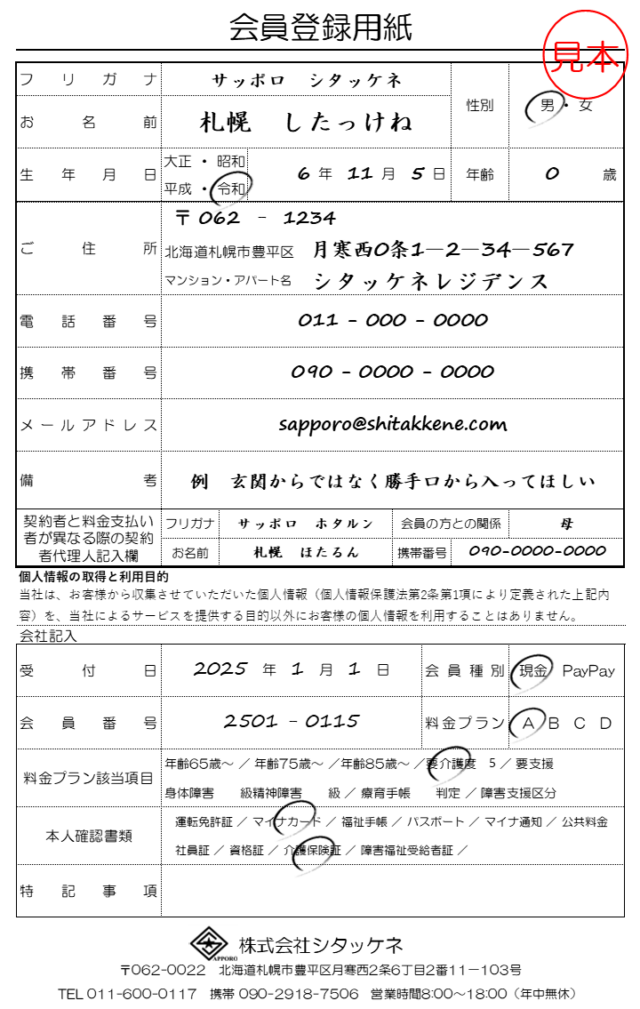 会員登録用紙
見本
フリガナ サッポロ シタッケネ
お名前 札幌 したっけね
性別 男・女
生年月日 大正・昭和
平成・令和 6年 11月 5日 年齢 0 歳
〒062 - 1234
ご住所 北海道札幌市豊平区 月寒西0条1―2―34―567
マンション・アパート名 シタッケネレジデンス
電話番号 011 - 000 - 0000
携帯番号 090 - 0000 - 0000
メールアドレス sapporo@shitakkene.com
備考 例 玄関からではなく勝手口から入ってほしい
契約者と料金支払い フリガナ サッポロ ホタルン 会員の方との関係 母
者が異なる際の契約
者代理人記入欄 お名前 札幌 ほたるん 携帯番号 090-0000-0000
個人情報の取得と利用目的
当社は、お客様から収集させていただいた個人情報（個人情報保護法第2条第1項により定義された上記内
容）を、当社によるサービスを提供する目的以外にお客様の個人情報を利用することはありません。
会社記入
受付日 2025 年 1 月 1 日 会員種別 現金 PayPay
会員番号 2501 - 0115 料金プラン A B C D
料金プラン該当項目 年齢65歳～／年齢75歳～／年齢85歳～／要介護度 5／要支援
身体障害 級精神障害 級／療育手帳 判定／障害支援区分
本人確認書類 運転免許証／マイナカード／福祉手帳／パスポート／マイナ通知／公共料金
社員証／資格証／介護保険証／障害福祉受給者証／
特記事項
SAPPORO 株式会社シタッケネ
〒062-0022 北海道札幌市豊平区月寒西2条6丁目2番11－103号
TEL 011-600-0117 携帯 090-2918-7506 営業時間8:00～18:00（年中無休）